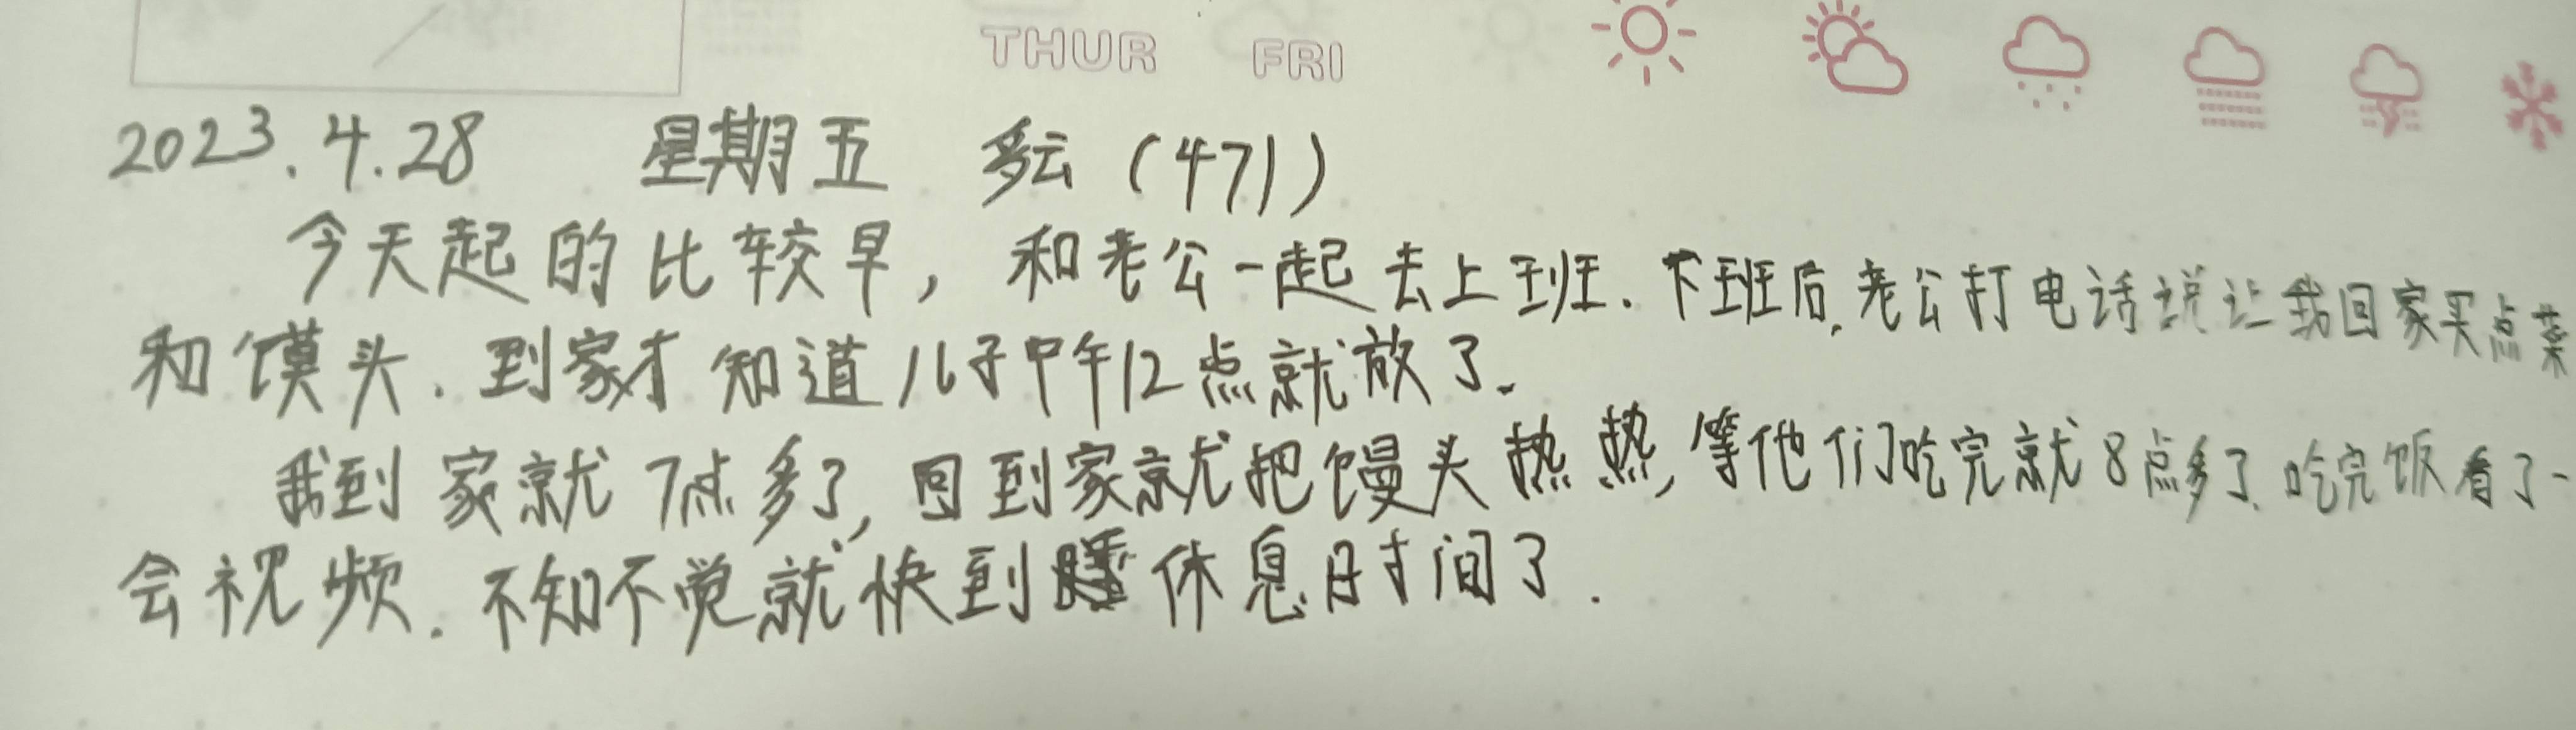 THUR FRI
2023.4.28 星期五 多云（471）
今天起的比较早，和老公一起去上班.下班后,老公打电话说让我回家买点菜
和馍头.到家才知道儿子中午12点就放了.
我到家就7点多了,回到家就把馒头热热,等他们吃完就8点多了.吃完饭看了一
会视频.不知不觉就快到休息时间了.